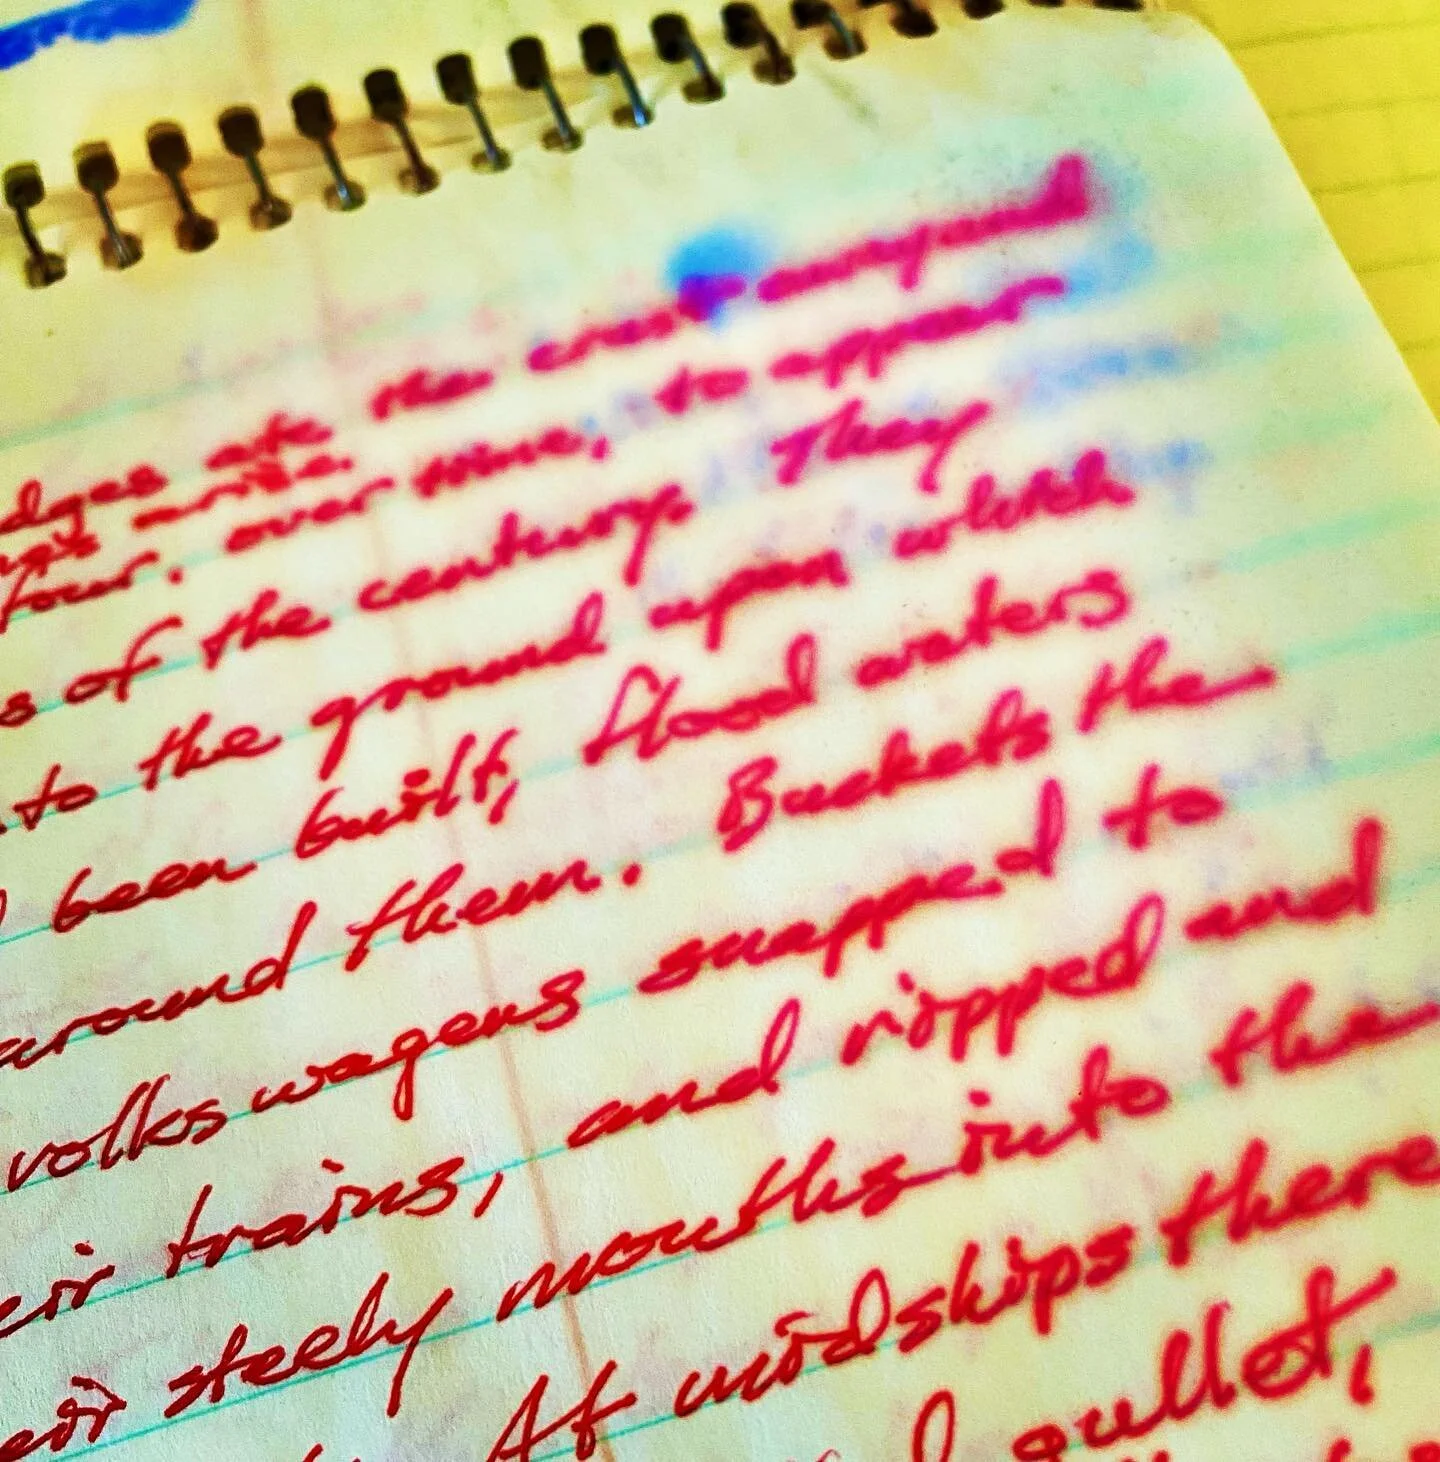 dges ate the crest
arise.
four. over time, to appear
s of the century. They
to the ground upon which
been built, flood waters
around them. Buckets the
volkswagens snapped to
eir trains, and ripped and
eir steely mouths into the
At midships there
gullet,